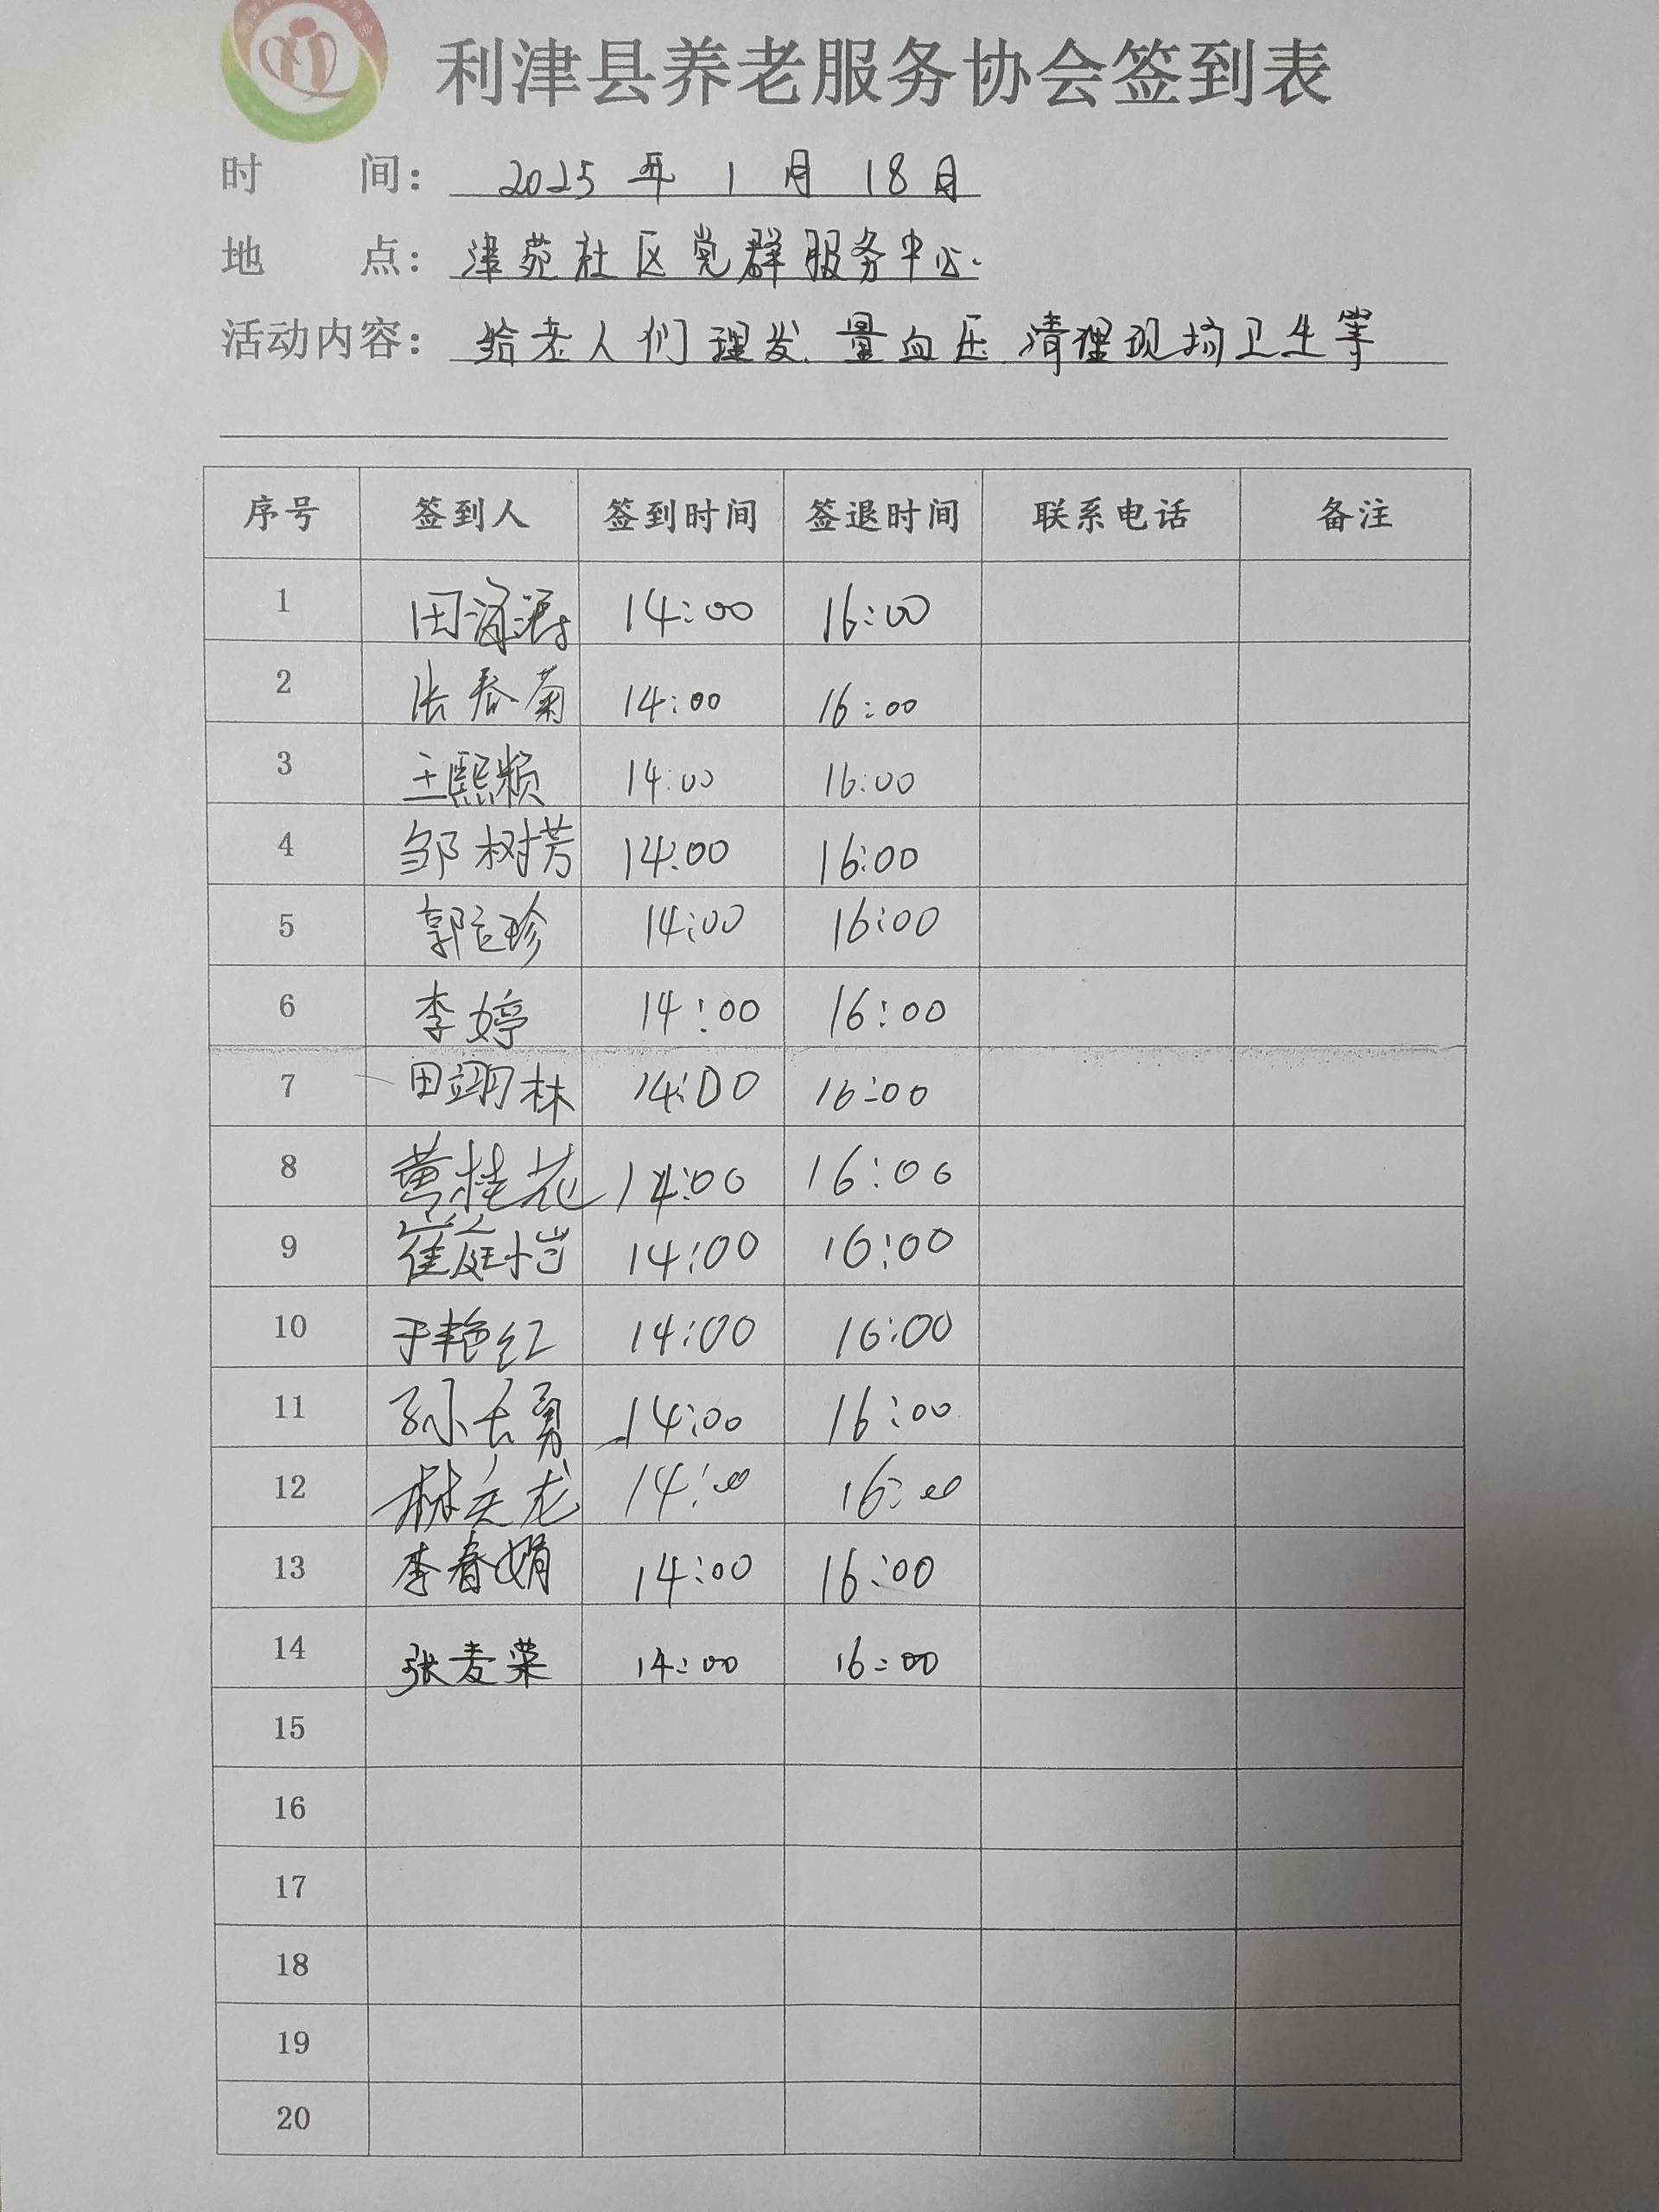 利津县养老服务协会签到表
时 间： 2025 年 1 月 18 日
地 点： 津苑社区党群服务中心.
活动内容： 给老人们理发、量血压、清理现场卫生等
序号 签到人 签到时间 签退时间 联系电话 备注
1 田 14:00 16:00
2 张春菊 14:00 16:00
3 王熙 14:00 16:00
4 邹树芳 14:00 16:00
5 郭 珍 14:00 16:00
6 李婷 14:00 16:00
7 田翊林 14:00 16:00
8 黄桂花 14:00 16:00
9 崔庭恺 14:00 16:00
10 于艳红 14:00 16:00
11 孙长勇 14:00 16:00
12 林 龙 14:00 16:00
13 李春娟 14:00 16:00
14 张麦菜 14:00 16:00
15
16
17
18
19
20